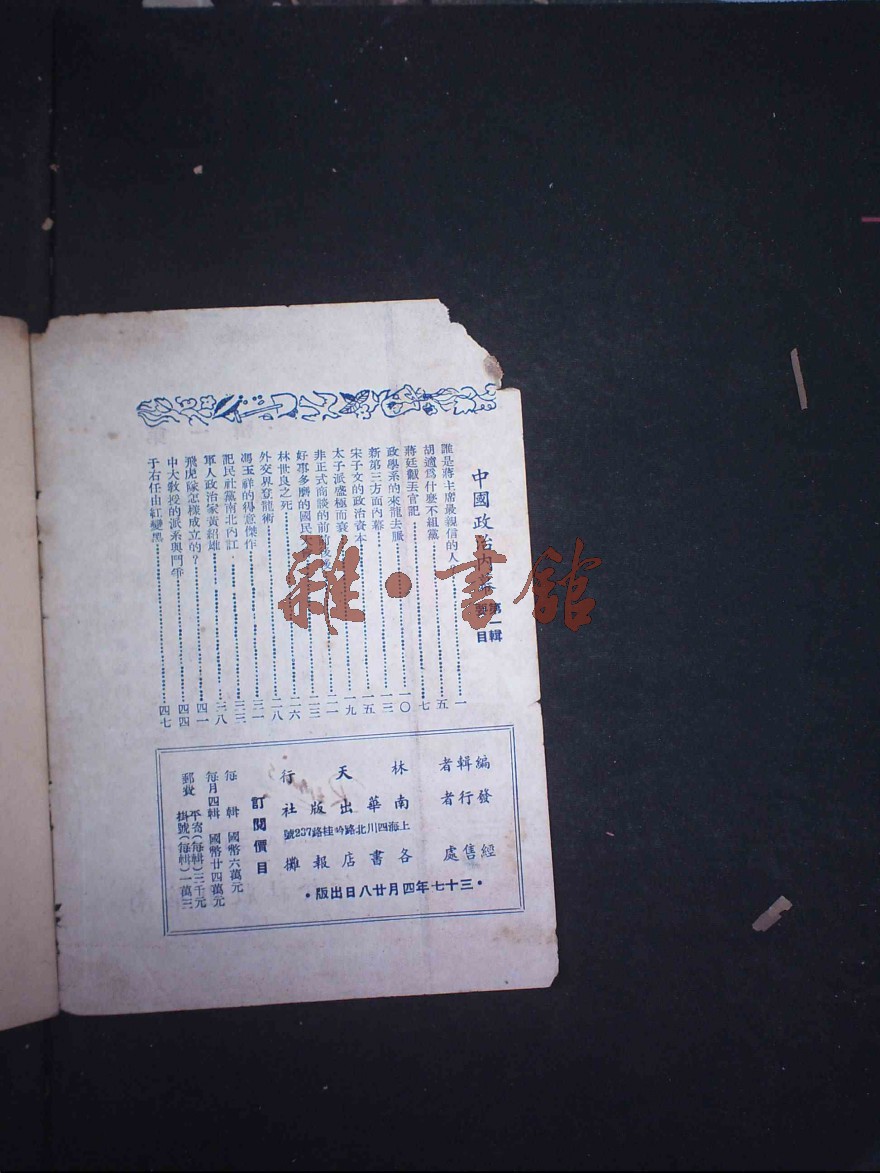 中國政治內幕 第一輯要目
誰是蔣主席最親信的人 一
胡適爲什麼不組黨 五
蔣廷黻丟官記 七
政學系的來龍去脈 一〇
新第三方面內幕 一三
宋子文的政治資本 一五
太子派盛極而衰 一九
非正式商談的前前後後 二一
好事多磨的國民 二三
林世良之死 二六
外交界登龍術 二八
馮玉祥的得意傑作 三一
記民社黨南北內訌 三三
軍人政治家黃紹雄 三八
飛虎隊怎樣成立的？ 四一
中大教授的派系與鬥爭 四四
于右任由紅變黑 四七
編輯者 林天行
發行者 南華出版社
上海四川北路吟桂路237號
經售處 各書店報攤
•三十七年四月廿八日出版•
訂閱價目
每輯 國幣六萬元
每月四輯 國幣廿四萬元
郵費 平寄(每輯)三千元
掛號(每輯)一萬三
雜•書館